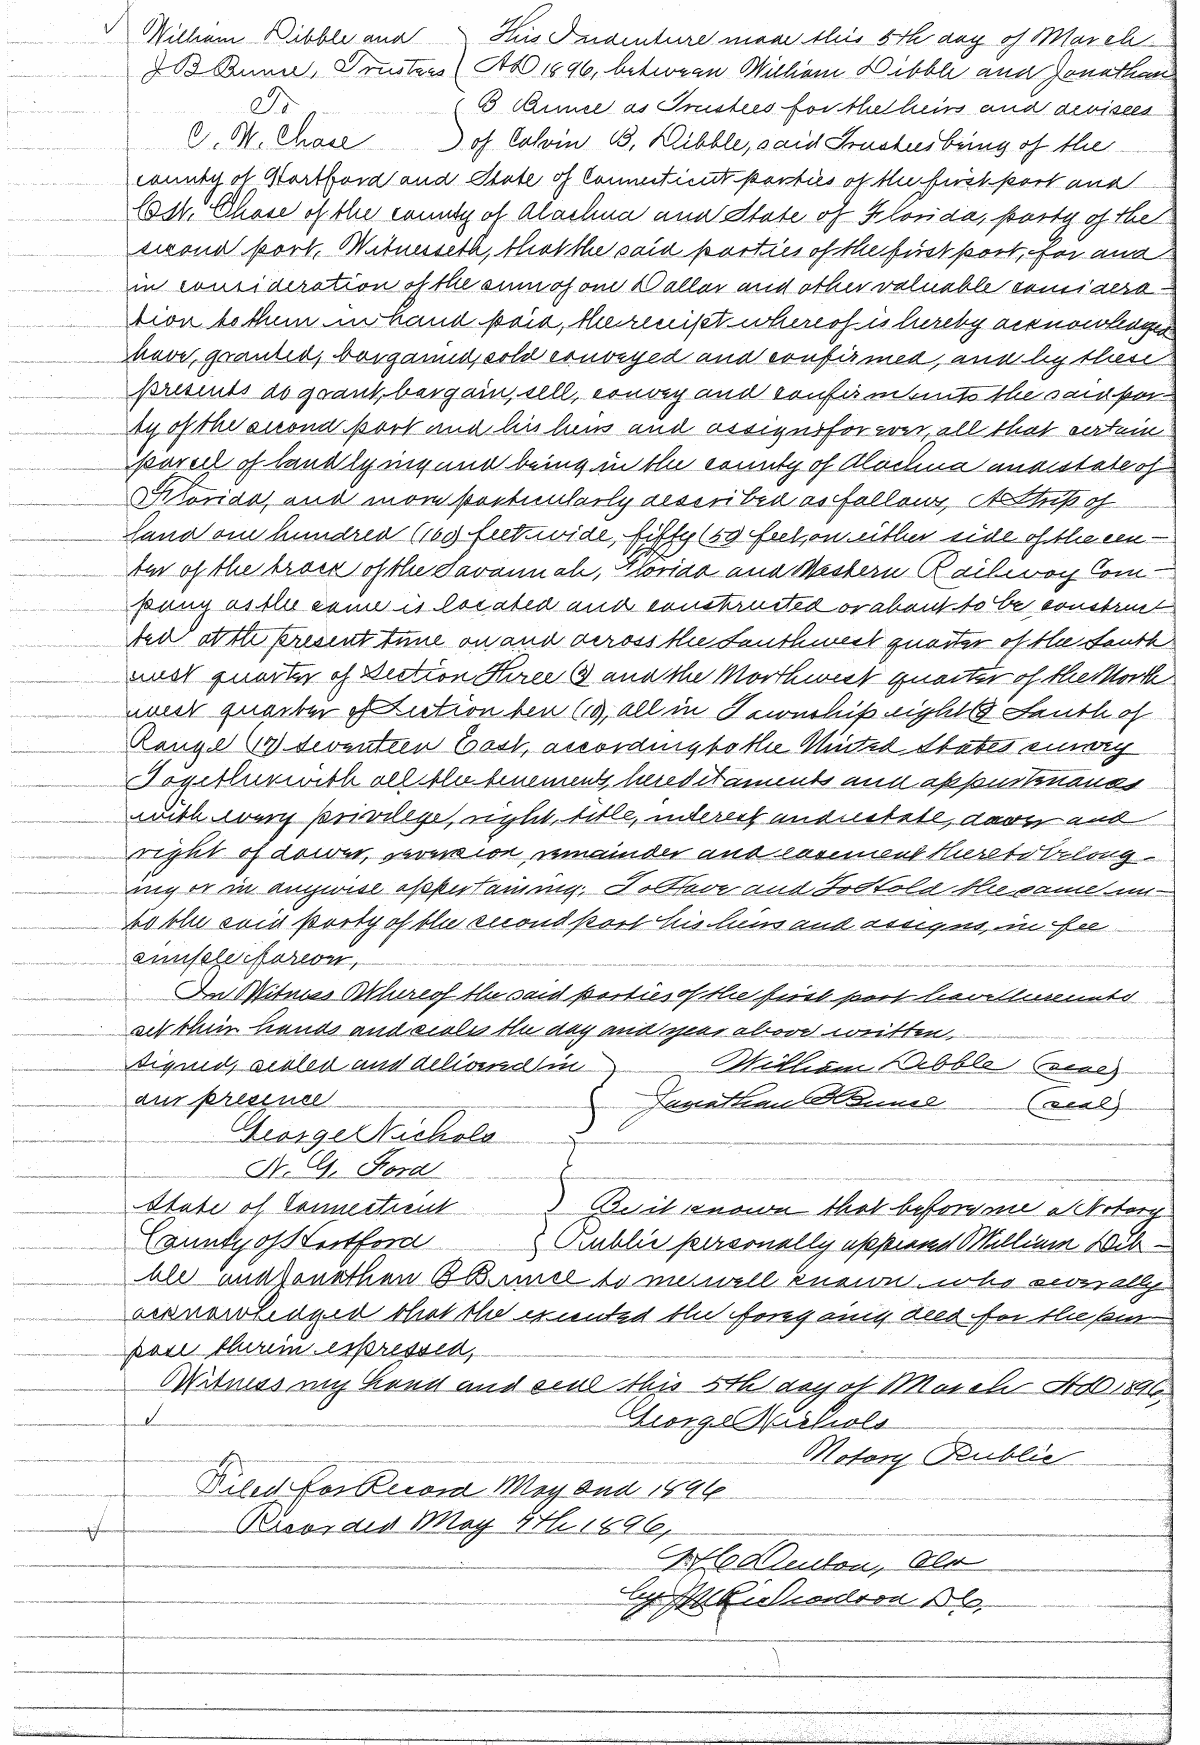 William Dibble and } This Indenture made this 5th day of March
J B Bunce, Trustees { AD 1896, between William Dibble and Jonathan
To { B Bunce as Trustees for the heirs and devisees
C. W. Chase } of Calvin B. Dibble, said Trustees being of the
county of Hartford and State of Connecticut parties of the first part and
C. W. Chase of the county of Alachua and State of Florida, party of the
second part, Witnesseth, that the said parties of the first part, for and
in consideration of the sum of one Dollar and other valuable considera-
tion to them in hand paid, the receipt whereof is hereby acknowledged
have, granted, bargained, sold conveyed and confirmed, and by these
presents do grant, bargain, sell, convey and confirm unto the said par-
ty of the second part and his heirs and assigns for ever, all that certain
parcel of land lying and being in the county of Alachua and state of
Florida, and more particularly described as follows, A Strip of
land one hundred (100) feet wide, fiffy (50) feet, on either side of the cen-
ter of the track of the Savannah, Florida and Western Railway Com-
pany as the same is located and constructed or about to be construct
ted at the present time on and across the Southwest quarter of the South
west quarter of Section Three (3) and the Northwest quarter of the North
west quarter of Section ten (10), all in Township eight (8) South of
Range (17) seventeen East, according to the United States survey
Together with all the tenements, hereditaments and appurtenances
with every privilege, right, title, interest and estate, dower and
right of dower, reversion, remainder and easement thereto belong-
ing or in anywise appertaining: To Have and To Hold the same un-
to the said party of the second part his heirs and assigns, in fee
simple forever,
In Witness Whereof the said parties of the first part have hereunto
set their hands and seales the day and year above written.
Signed, sealed and delivered in } William Dibble (seal)
our presence } Jonathan B Bunce (seal)
George Nichols
N. G. Ford
State of Connecticut } Be it known that before me a Notary
County of Hartford } Public personally appeared William Dib-
ble and Jonathan B Bunce to me well known who severally
acknowledged that the executed the foregoing deed for the pur-
pose therein expressed,
Witness my hand and seal this 5th day of March AD 1896,
George Nichols
Notary Public
Filed for Record May 2nd 1896
Recorded May 9th 1896,
Denton, Clk
by Richardson D C.